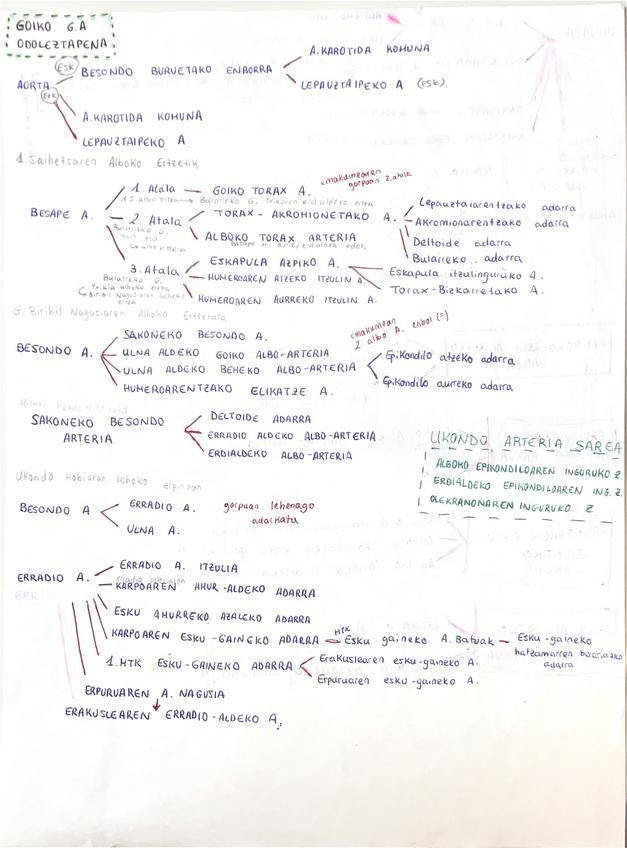 GOIKO G.A
ODOLEZTAPENA
A. KAROTIDA KOMUNA
Esk
BESONDO BURUETAKO ENBORRA
LEPAUZTAIPEKO A (ESK)
AORTA
A. KAROTIDA KOMUNA
LEPAUZTAIPEKO A
1. Saihetsaren Alboko Ertzetik
emakumearen gorpuan 2. atala
1. Atala — GOIKO TORAX A.
BESAPE A.
2. Atala
TORAX - AKROMIONETAKO A.
Lepauztaiarentzako adarra
Akromionarentzako adarra
Deltoide adarra
Bularreko adarra
ALBOKO TORAX ARTERIA
3. Atala
ESKAPULA AZPIKO A.
Eskapula itzulinguruko A.
Torax-Bizkarretako A.
HUMEROAREN ATZEKO ITZULIN A.
HUMEROAREN AURREKO ITZULIN A.
G. Biribil Nagusiaren Alboko Ertzetara
emakumean 2 albo A. enbor (=)
BESONDO A.
SAKONEKO BESONDO A.
ULNA ALDEKO GOIKO ALBO-ARTERIA
ULNA ALDEKO BEHEKO ALBO-ARTERIA
Epikondilo atzeko adarra
Epikondilo aurreko adarra
HUMEROARENTZAKO ELIKATZE A.
SAKONEKO BESONDO
ARTERIA
DELTOIDE ADARRA
ERRADIO ALDEKO ALBO-ARTERIA
ERDIALDEKO ALBO-ARTERIA
UKONDO ARTERIA SAREA
ALBOKO EPIKONDILOAREN INGURUKO Z.
ERDIALDEKO EPIKONDILOAREN ING. Z.
OLEKRANONAREN INGURUKO Z
Ukondo Hobiaren beheko erpinean
BESONDO A
ERRADIO A.
ULNA A.
gorpuan lehenago
adarkatu
ERRADIO A.
ERRADIO A. ITZULIA
KARPOAREN AHUR-ALDEKO ADARRA
ESKU AHURREKO AZALEKO ADARRA
KARPOAREN ESKU-GAINEKO ADARRA — HTK Esku gaineko A. Batuak — Esku-gaineko
hatzamarren bularretako
adarra
1. HTK ESKU-GAINEKO ADARRA
Erakuslearen esku-gaineko A.
Erpuruaren esku-gaineko A.
ERPURUAREN A. NAGUSIA
ERAKUSLEAREN ERRADIO-ALDEKO A.